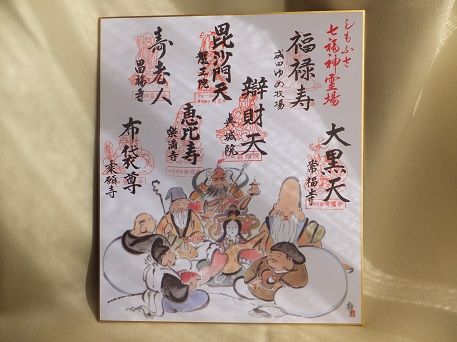 しもふさ
七福神霊場
福禄寿
成田ゆめ牧場
大黒天
常福寺
辯財天
眞城院
毘沙門天
龍正院
恵比寿
楽満寺
寿老人
昌福寺
布袋尊
東願寺